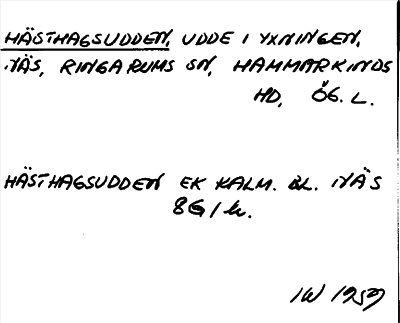 HÄSTHAGSUDDEN, UDDE I YXNINGEN,
NÄS, RINGARUMS SN, HAMMARKINDS
HD, ÖG. L.
HÄSTHAGSUDDEN EK KALM. BL. NÄS
8G1k.
IW 1959